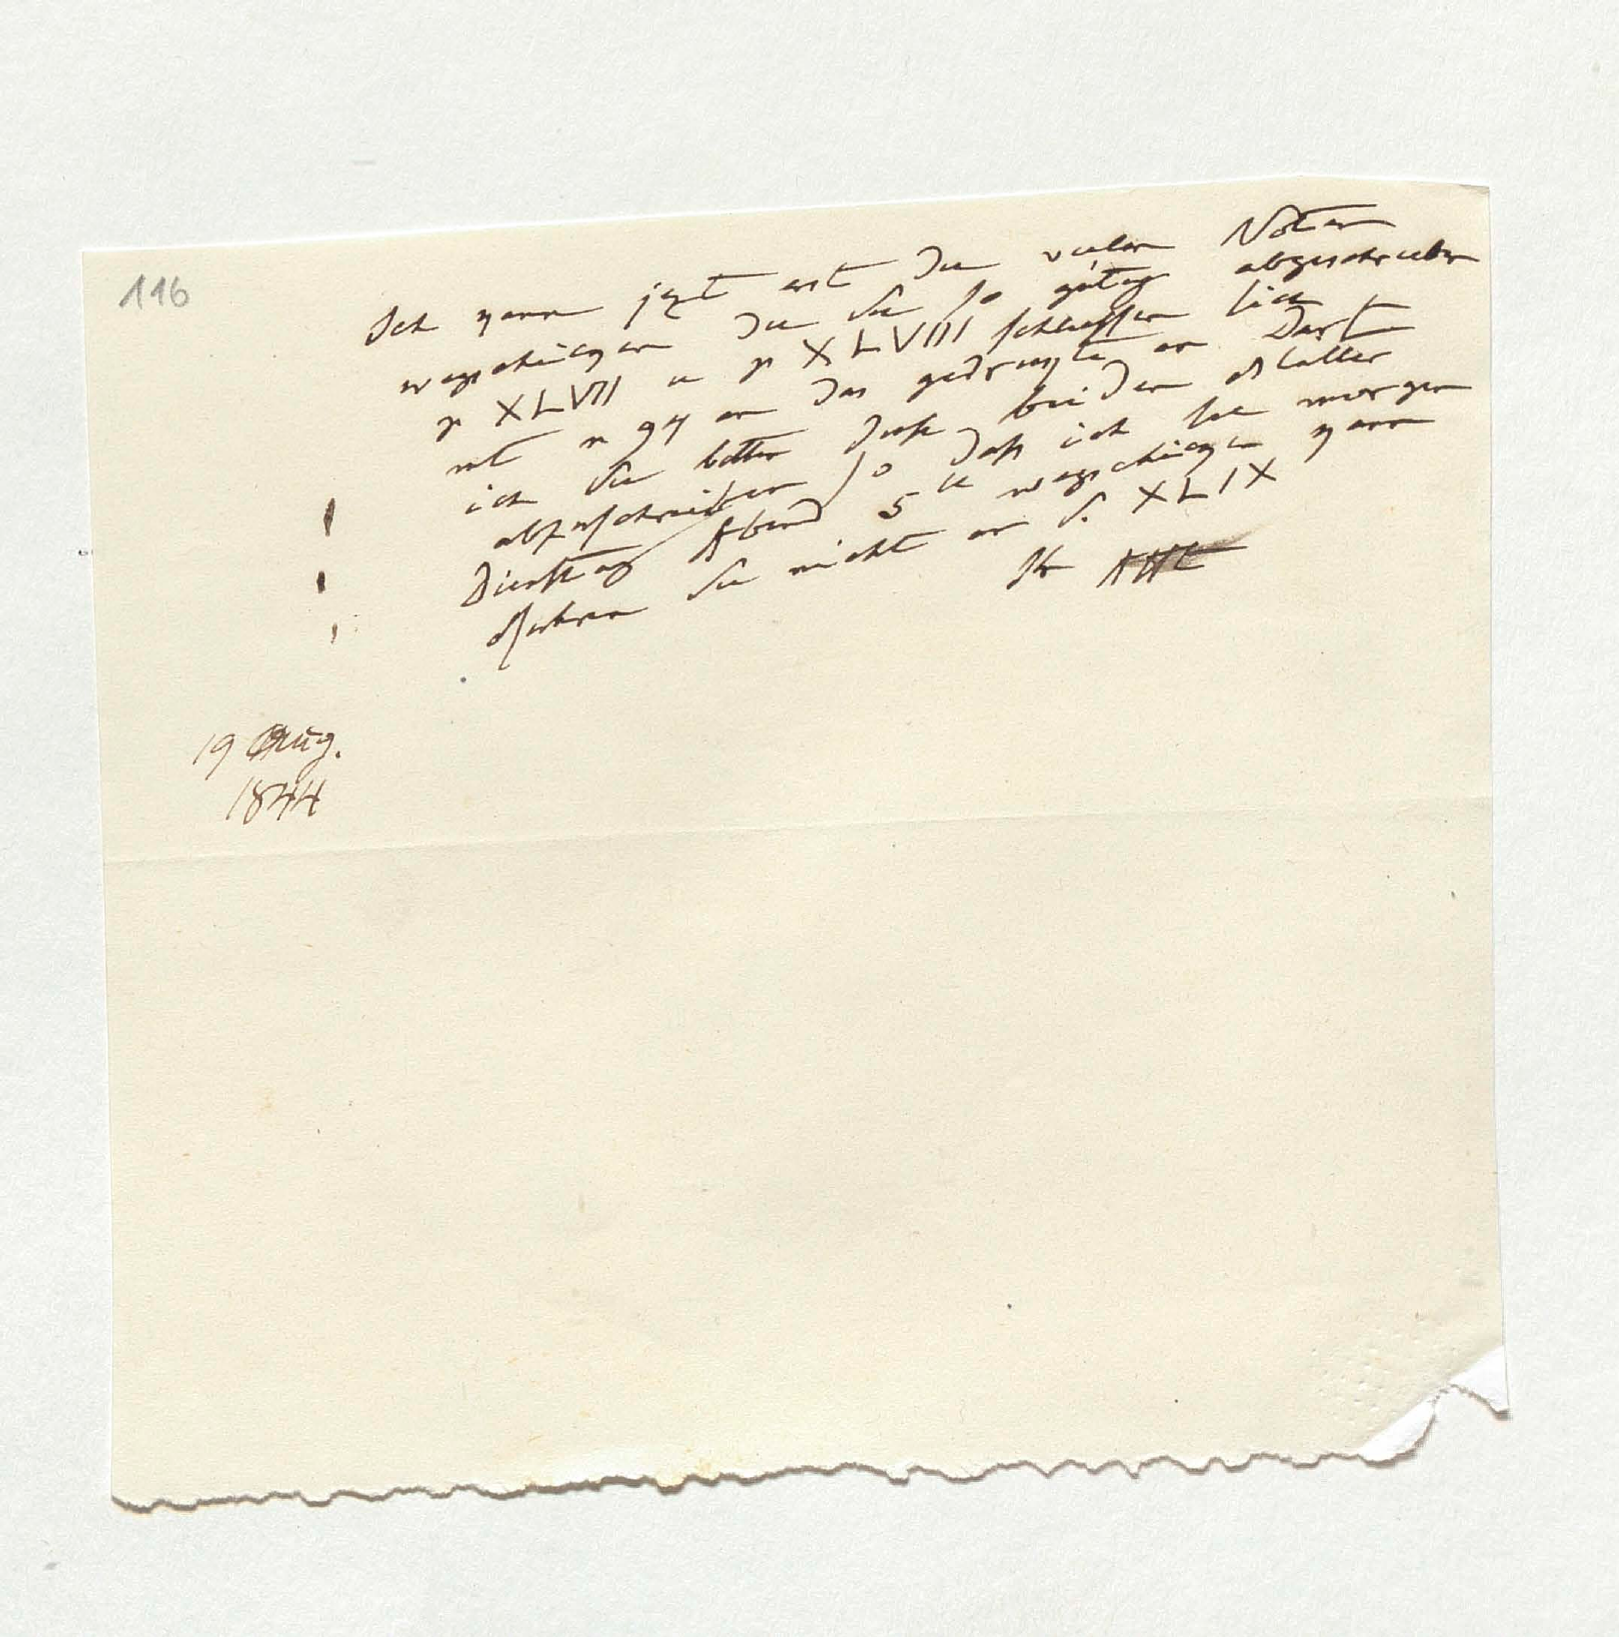 116
Ich kann jezt erst die vielen Noten
wegschicken die Sie so gütig abgeschrieben
p XLVII u p XLVIII schliessen sich
an das gedruckte an Darf
ich Sie bitten diese beiden Blätter
abzuschreiben so daß ich sie morgen
Dienstag Abend 5 U wegschicken kann
Sie nicht an S. XLIX
Ihr AHt
19 Aug.
1844